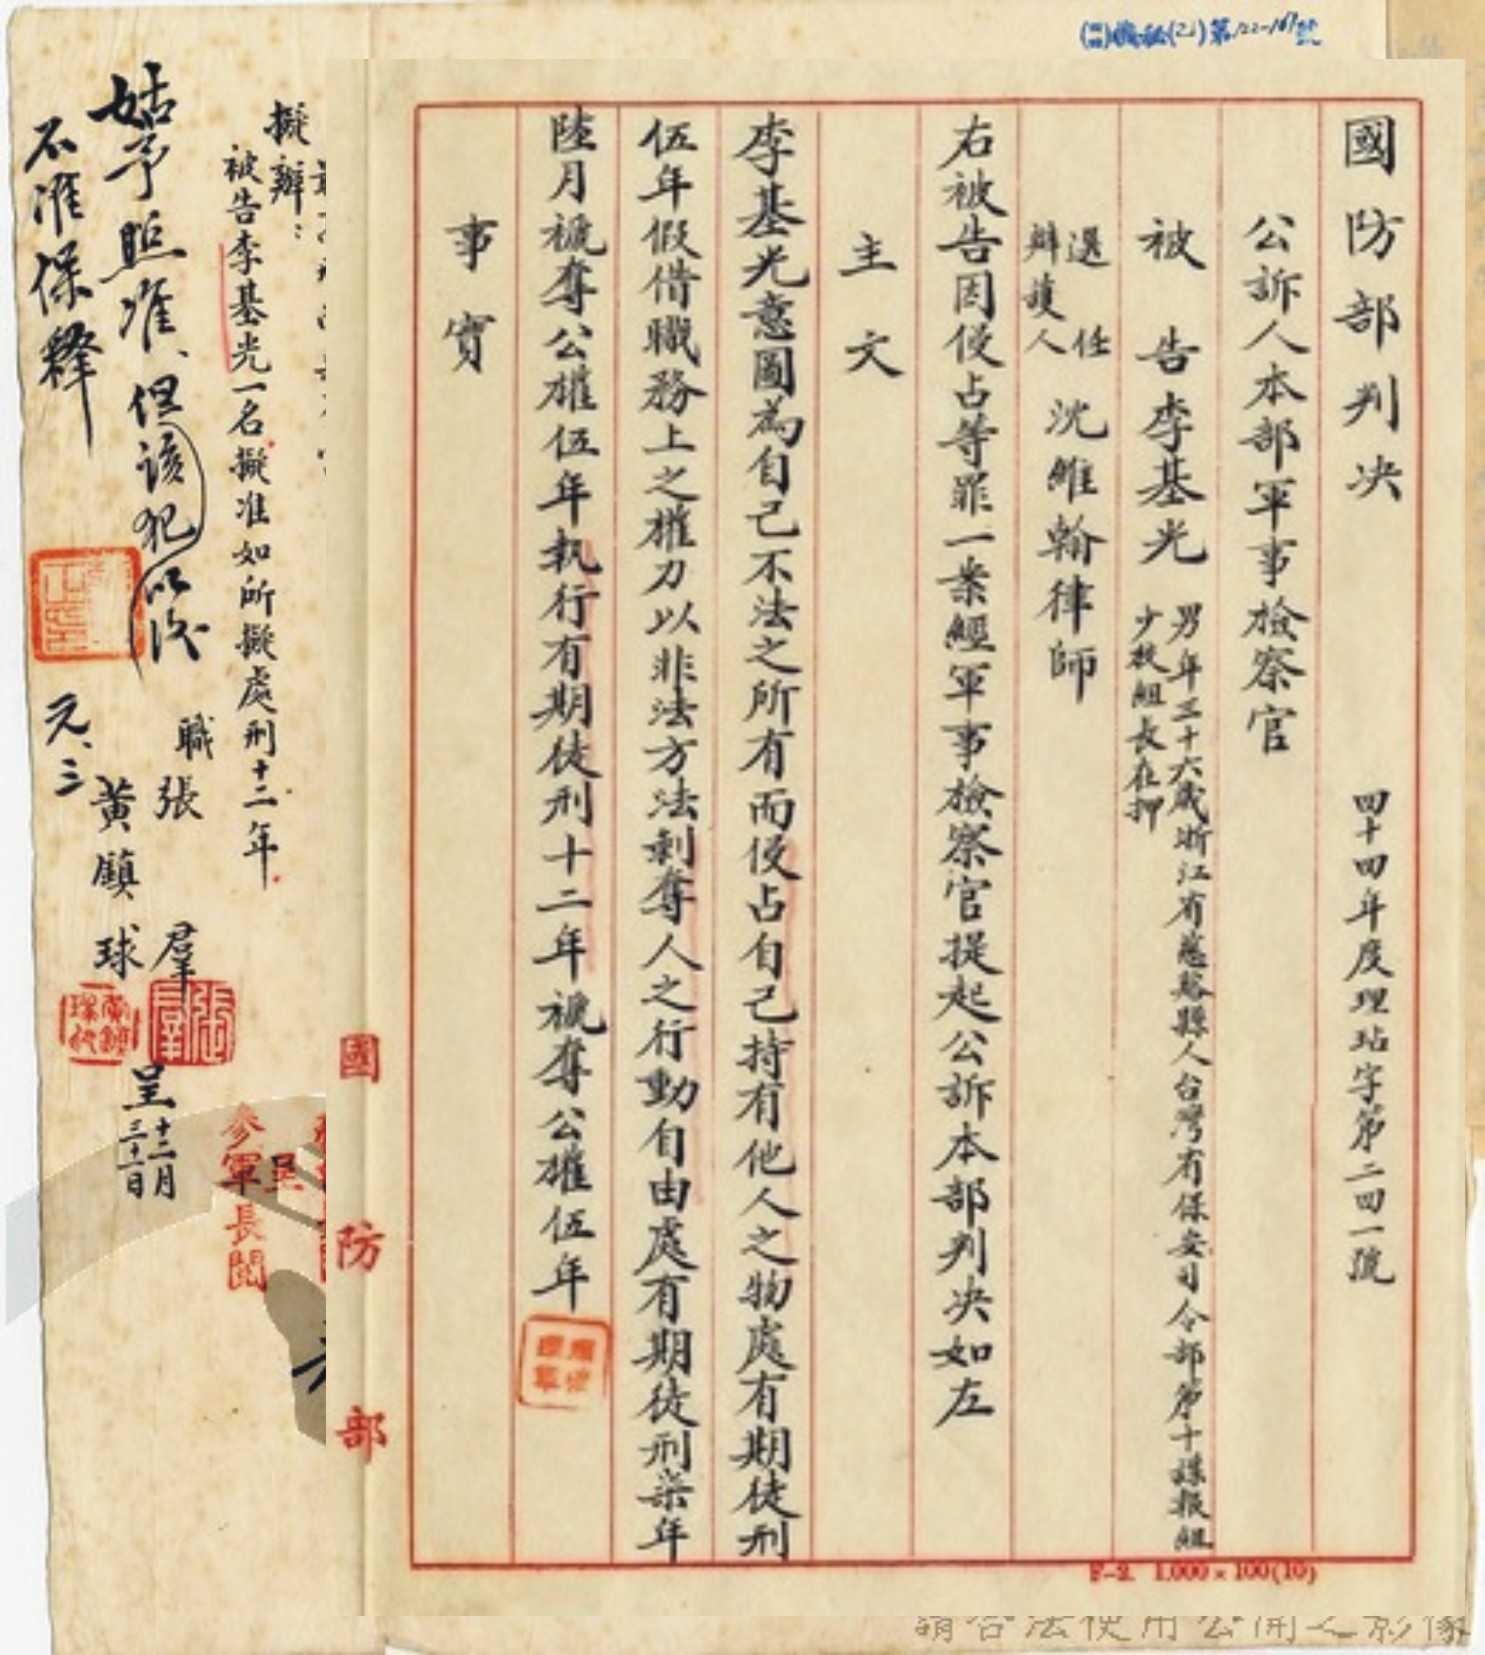 國防部判決 四十四年度理玷字第二四一號
公訴人本部軍事檢察官
被告李基光 男年三十六歲浙江省慈谿縣人台灣省保安司令部第十諜報組
少校組長在押
選任
辯護人 沈維翰律師
右被告因侵占等罪一案經軍事檢察官提起公訴本部判決如左
主文
李基光意圖為自己不法之所有而侵占自己持有他人之物處有期徒刑
伍年假借職務上之權力以非法方法剝奪人之行動自由處有期徒刑柒年
陸月褫奪公權伍年執行有期徒刑十二年褫奪公權伍年
事實
國防部
F-2. 1.000×100(10)
擬辦：
被告李基光一名擬准如所擬處刑十二年
職張羣
黃鎮球
呈 十二月
三十一日
參軍長閱
姑予照准、但該犯以後
不准保釋
元、三
請合法使用公開之影像